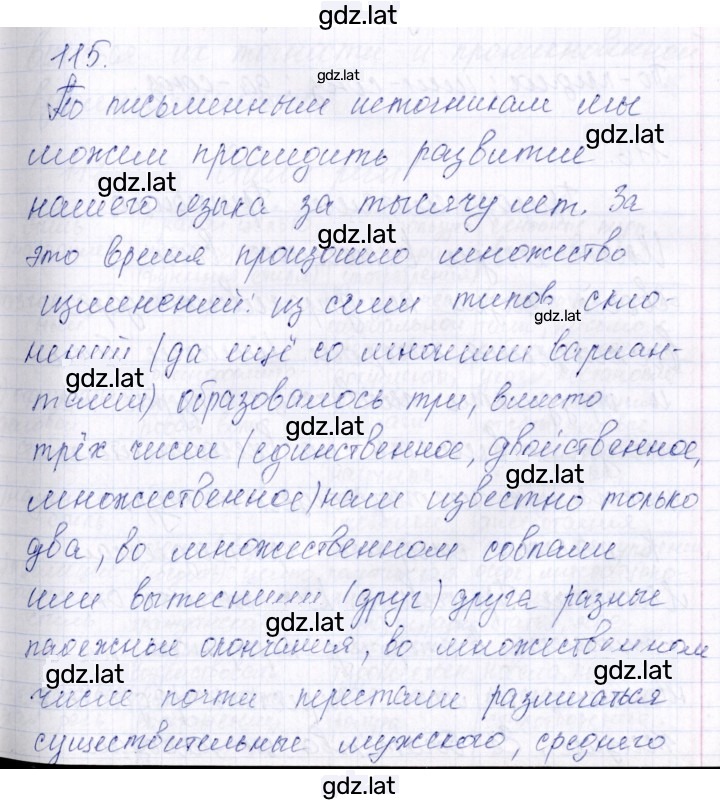 gdz.lat
115.
gdz.lat
По письменным источникам мы
gdz.lat
можем проследить развитие
gdz.lat
нашего языка за тысячу лет. За
gdz.lat
это время произошло множество
изменений: из семи типов скло-
gdz.lat
нений (да ещё со многими вариан-
gdz.lat
тами) образовалось три, вместо
gdz.lat
трёх чисел (единственное, двойственное,
gdz.lat
множественное) нам известно только
два, во множественном совпали
или вытеснили (друг) друга разные
gdz.lat
падежные окончания, во множественном
gdz.lat
gdz.lat
числе почти перестали различаться
существительные мужского, среднего
gdz.lat